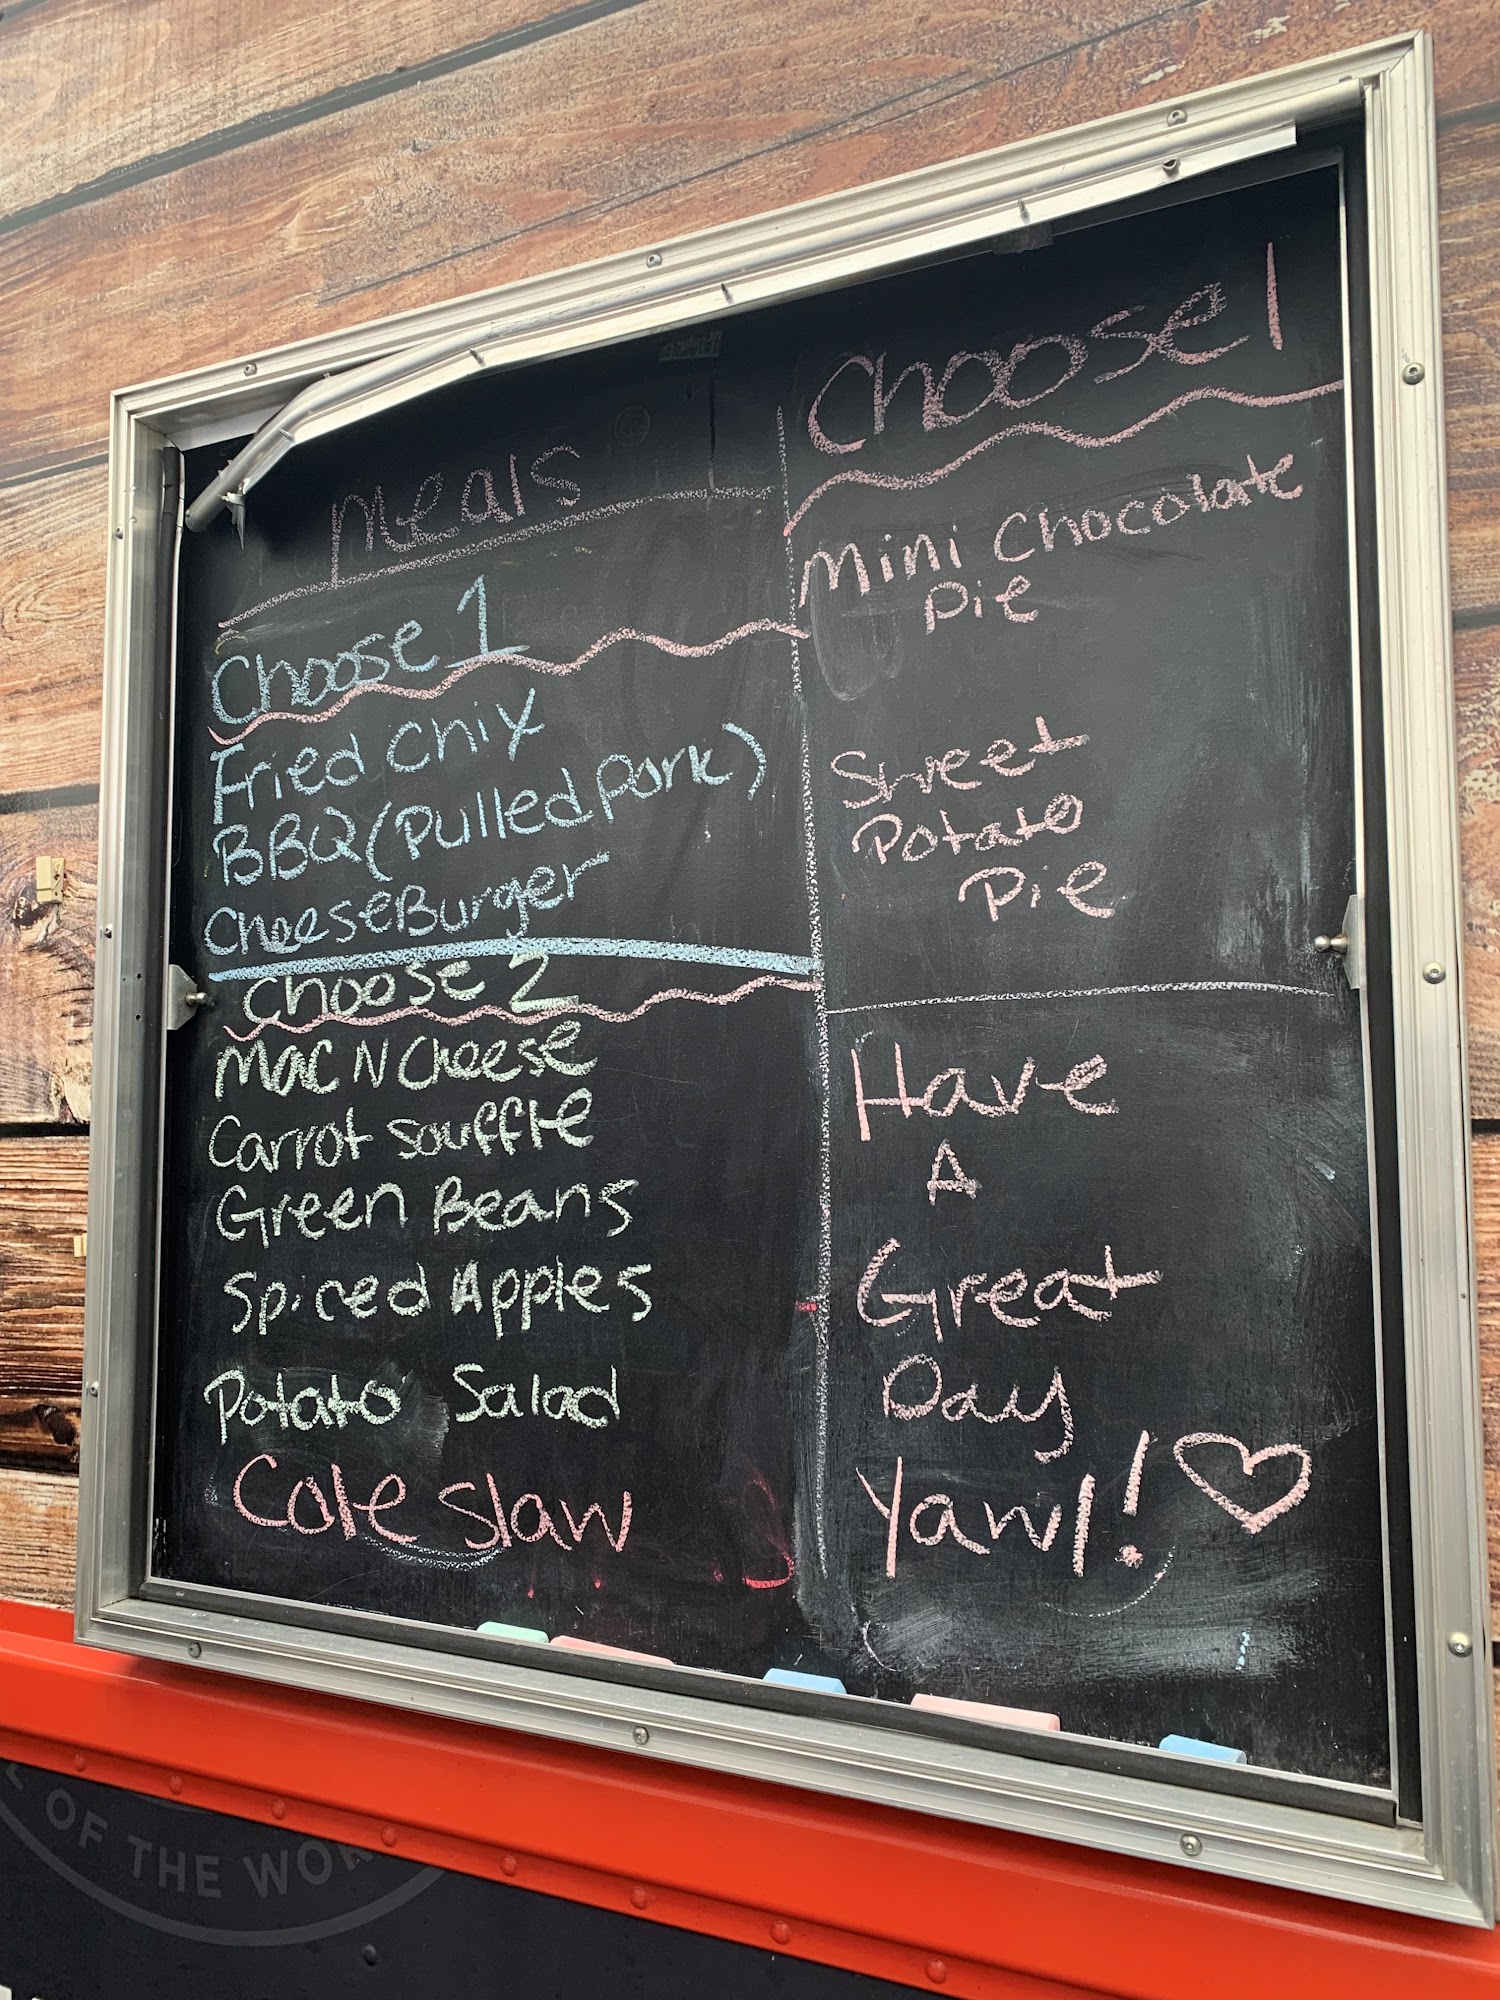 Meals
Choose 1
Fried Chix
BBQ (Pulled Pork)
CheeseBurger
Choose 2
Mac N Cheese
Carrot Souffle
Green Beans
Spiced Apples
Potato Salad
Cole slaw
Choose 1
Mini Chocolate
Pie
Sweet
Potato
Pie
Have
A
Great
Day
Yawl!
OF THE WOR